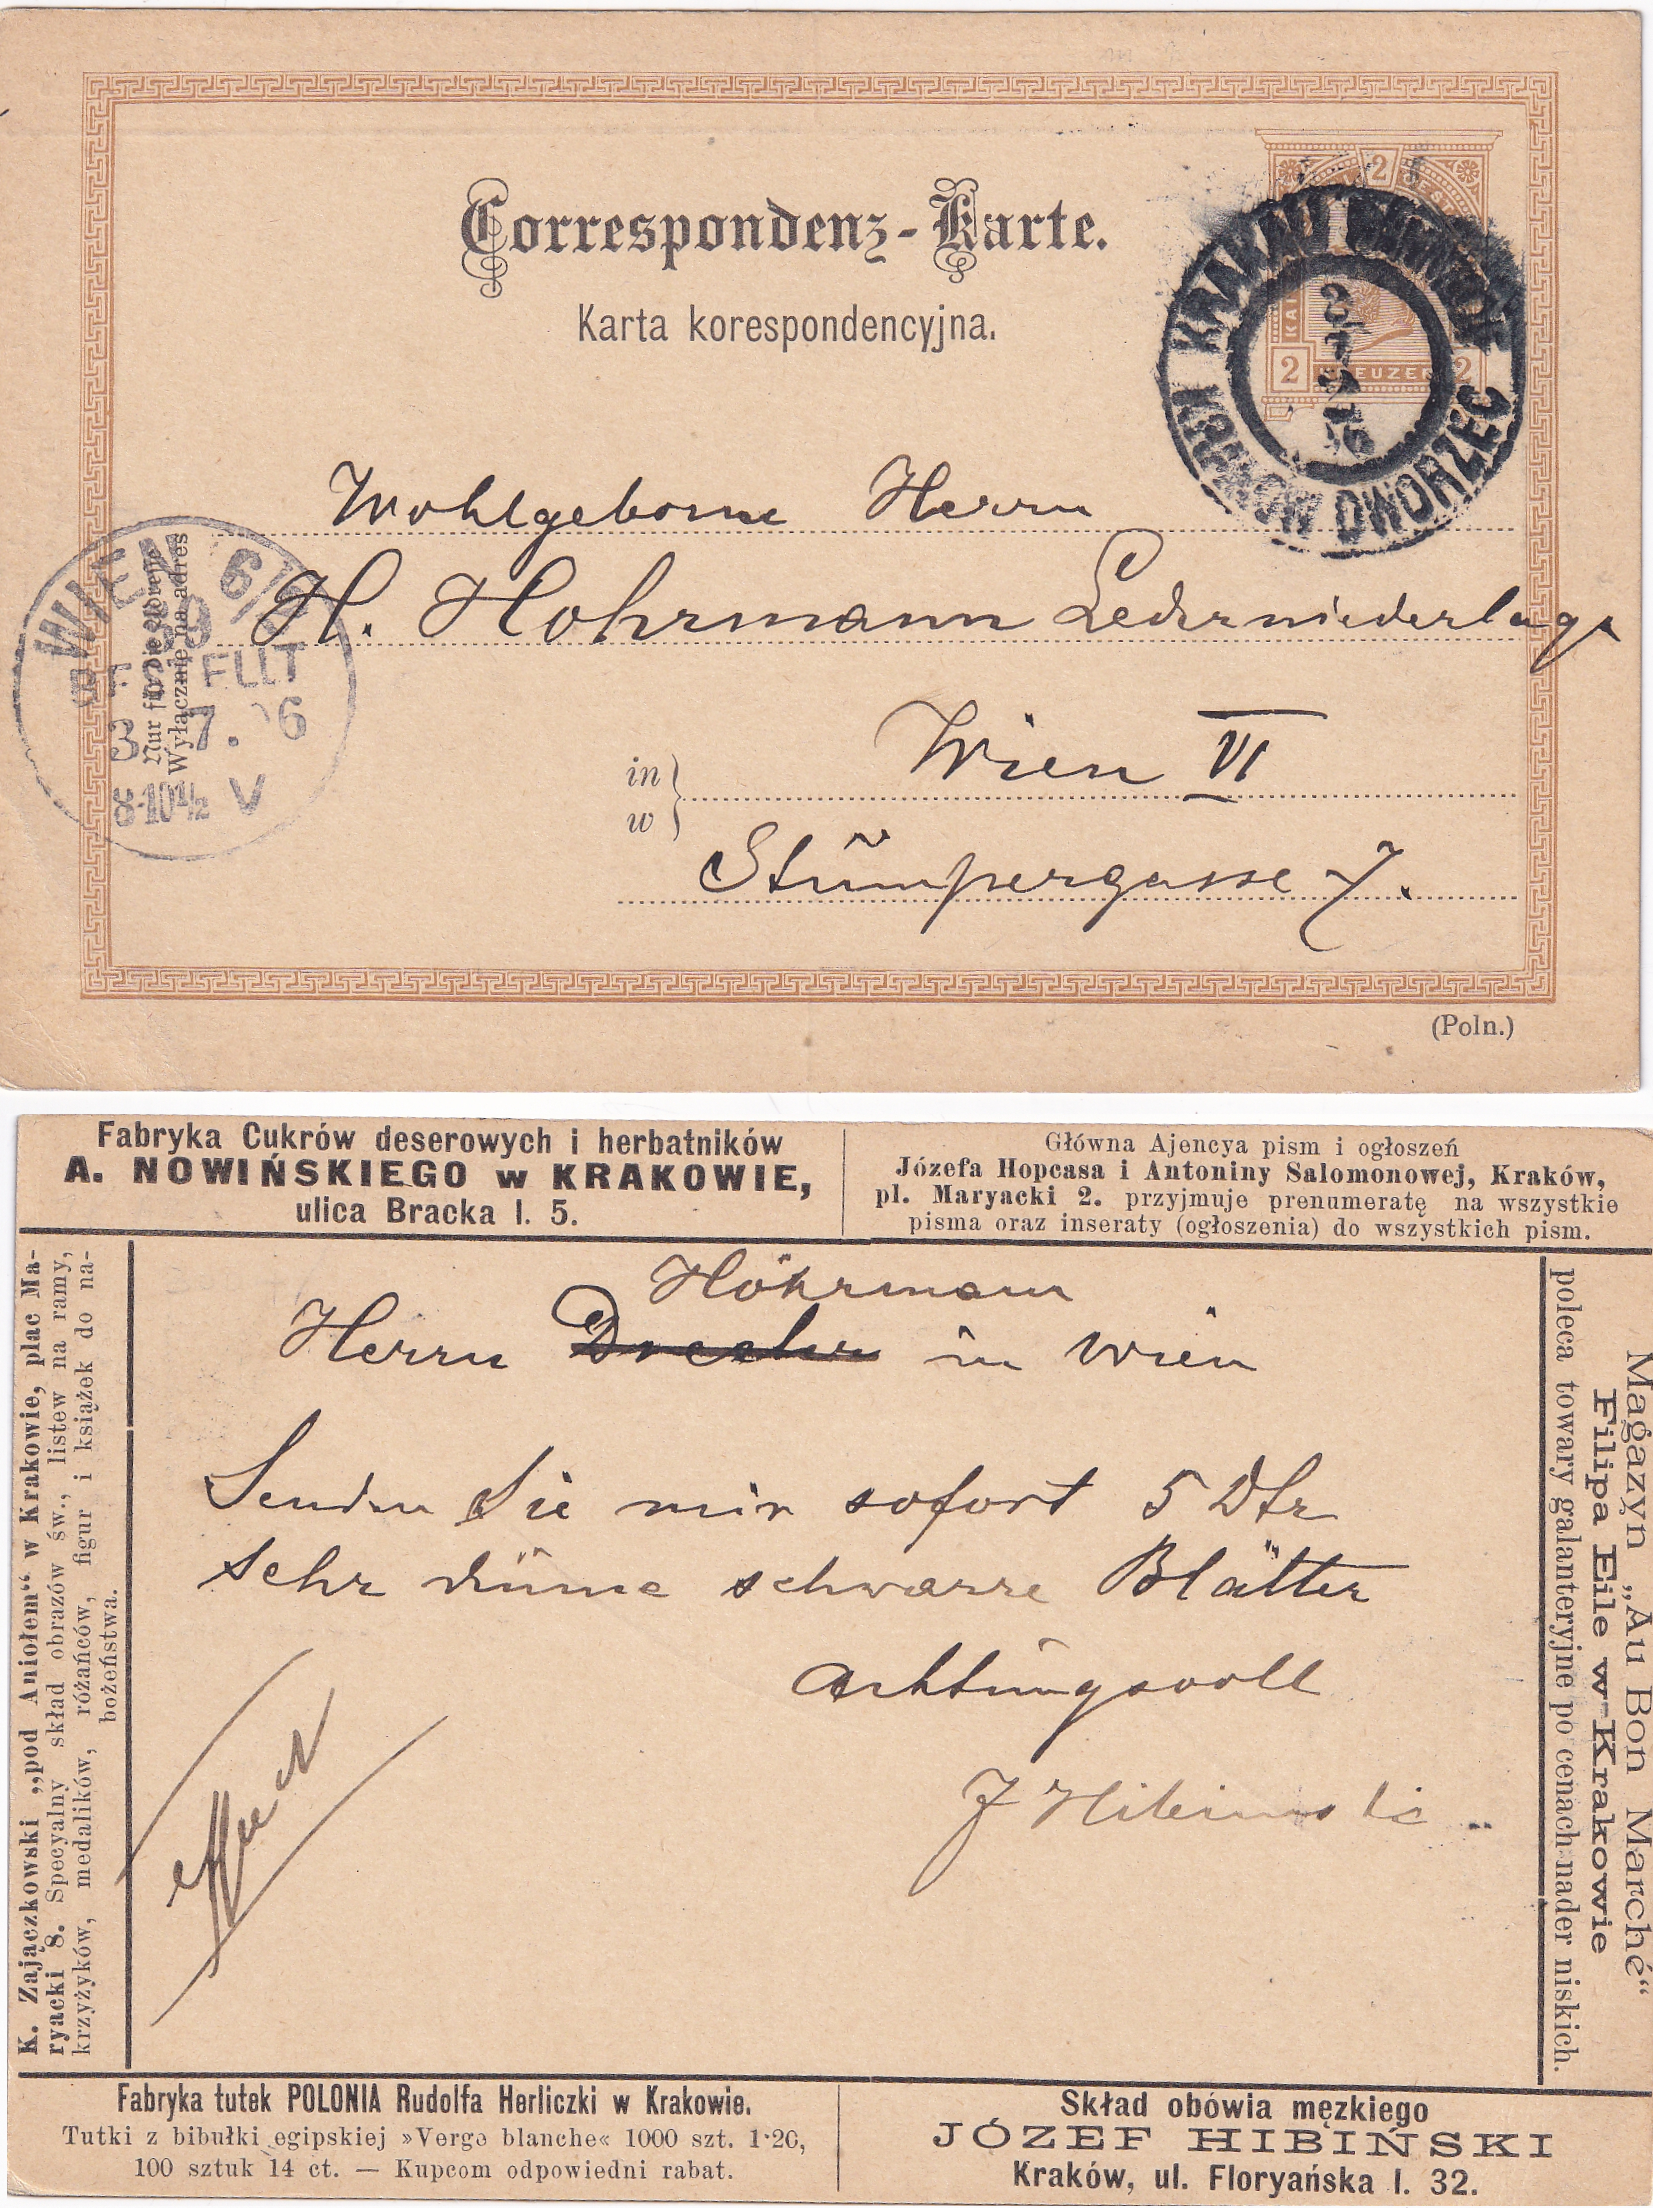 Correspondenz-Karte.
Karta korespondencyjna.
2
2 KREUZER 2
KRAKAU
KRAKÓW DWORZEC
Wohlgeborne Herrn
H. Hohrmann Lederniederlage
in
w
Wien VI
Stumpergasse 7.
Nur für die Adresse
Wyłącznie na adres
WIEN 6/
89
BESTELLT
3. 7. 96
8-10½ V
(Poln.)
Fabryka Cukrów deserowych i herbatników
A. NOWIŃSKIEGO w KRAKOWIE,
ulica Bracka l. 5.
Główna Ajencya pism i ogłoszeń
Józefa Hopcasa i Antoniny Salomonowej, Kraków,
pl. Maryacki 2. przyjmuje prenumeratę na wszystkie
pisma oraz inseraty (ogłoszenia) do wszystkich pism.
K. Zajączkowski „pod Aniołem“ w Krakowie, plac Ma-
ryacki 8. Specyalny skład obrazów św., listew na ramy,
krzyżyków, medalików, różańców, figur i książek do na-
bożeństwa.
Höhrmann
Herrn in Wien
Senden Sie mir sofort 5 Dtz
sehr dünne schwarze Blätter
Achtungsvoll
J Hibinski
Magazyn „Au Bon Marché“
Filipa Eile w Krakowie
poleca towary galanteryjne po cenach nader niskich.
Fabryka tutek POLONIA Rudolfa Herliczki w Krakowie.
Tutki z bibułki egipskiej »Verge blanche« 1000 szt. 1·20,
100 sztuk 14 ct. — Kupcom odpowiedni rabat.
Skład obówia męzkiego
JÓZEF HIBIŃSKI
Kraków, ul. Floryańska l. 32.